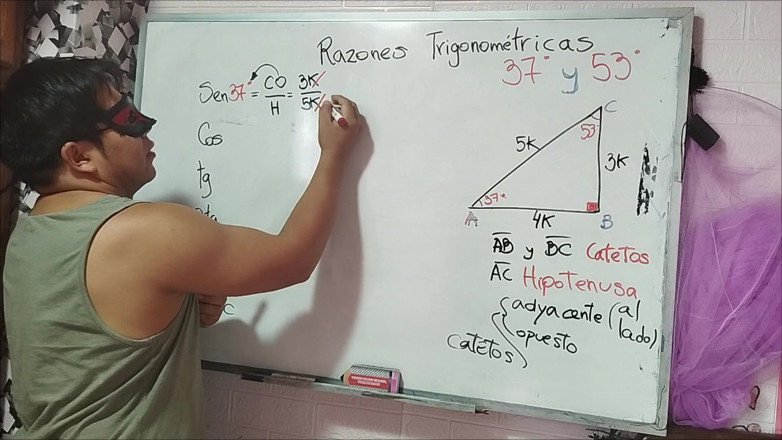 Razones Trigonométricas
37° y 53°
Sen37° = CO/H = 3K/5K
Cos
tg
C
5K
53°
3K
37°
A
4K
B
AB y BC Catetos
AC Hipotenusa
catetos { adyacente (al lado)
opuesto
c